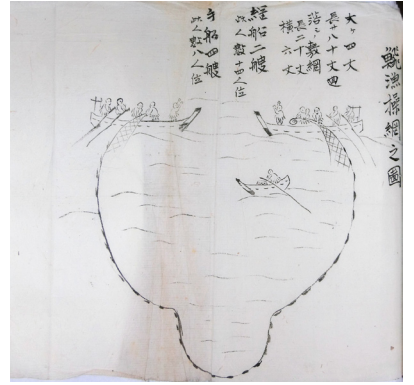 漁操網之圖
大サ四丈
長サ十八丈廻
敷網
長二十丈
横六丈
船二艘
此人数十四人位
手船四艘
此人数八人位